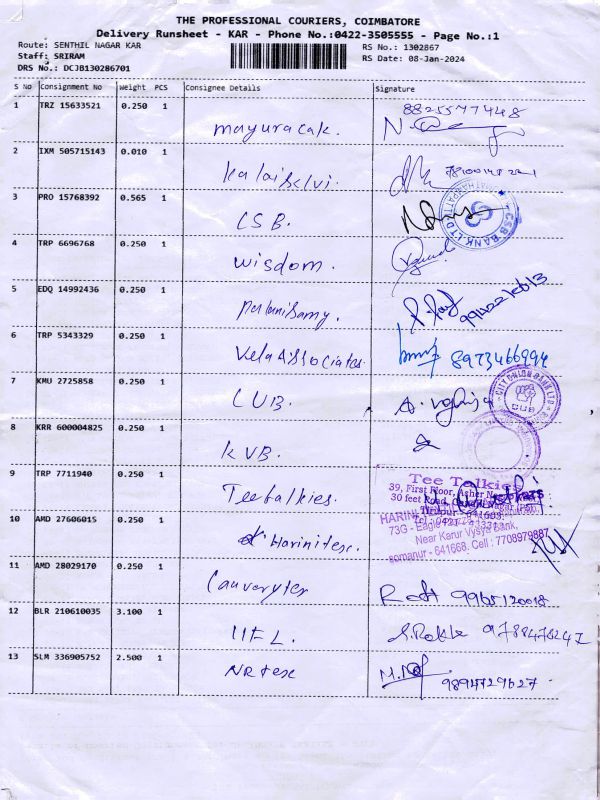 THE PROFESSIONAL COURIERS, COIMBATORE
Delivery Runsheet - KAR - Phone No.:0422-3505555 - Page No.:1
Route: SENTHIL NAGAR KAR
RS No.: 1302867
Staff: SRIRAM
RS Date: 08-Jan-2024
DRS No.: DCJB130286701
S No Consignment No Weight PCS Consignee Details Signature
1 TRZ 15633521 0.250 1 mayuracak. 8825577448
2 IXM 505715143 0.010 1 kalaiselvi.
3 PRO 15768392 0.565 1 CSB. CSB BANK LTD
4 TRP 6696768 0.250 1 wisdom.
5 EDQ 14992436 0.250 1 palanisamy.
6 TRP 5343329 0.250 1 velassociates. 8973466994
7 KMU 2725858 0.250 1 CUB. CITY UNION BANK LTD CUB
8 KRR 600004825 0.250 1 KVB.
9 TRP 7711940 0.250 1 Teetalkies. Tee Talkies
39, First Floor, Asher
30 feet Road,
10 AMD 27606015 0.250 1 Harinitex. HARINI
73G - Eagle
Near Karur Vysya Bank,
somanur - 641668. Cell : 7708979887
11 AMD 28029170 0.250 1 Cauverytex 9965120018
12 BLR 210610035 3.100 1 IIFL. 9788476247
13 SLM 336905752 2.500 1 NRtex 9894729627